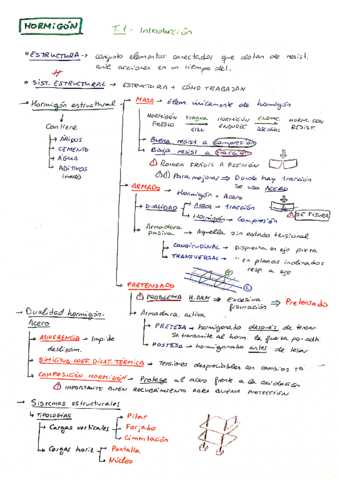 HORMIGÓN
T.1 - Introducción
ESTRUCTURA → conjunto elementos conectados que dotan de resist.
ante acciones en un tiempo det.
SIST. ESTRUCTURAL → ESTRUCTURA + CÓMO TRABAJAN
→ Hormigón estructural
Contiene
→ ÁRIDOS
→ CEMENTO
→ AGUA
→ ADITIVOS
→ MASA → Elem. únicamente de hormigón
HORMIGÓN FRESCO → FRAGUA → HORMIGÓN ENDUREC → ENDUREC. 28 días → HORM. CON RESIST.
Buena resist a Compresión
Baja resist a Tracción
⚠ ROTURA FRÁGIL A FLEXIÓN
Para mejorar → Donde hay tracción
se usa ACERO
→ ARMADO → Hormigón + Acero
→ DUALIDAD → Acero → Tracción
→ Hormigón → Compresión
⚠ SE FISURA
→ Armadura pasiva → Aquella sin estado tensional
→ LONGITUDINAL → Dispuesta en eje pieza
→ TRANSVERSAL → " en planos inclinados
resp a eje
→ PRETENSADO
⚠ PROBLEMA H. ARM → Excesiva fisuración → Pretensado
→ Armadura activa
→ PRETESA → hormigonado después de tensar
Se transmite al horm. la fuerza por adh.
→ POSTESA → hormigonado antes de tesar
→ Dualidad hormigón-Acero
→ ADHERENCIA → Impide deslizam.
→ SIMILITUD COEF. DILAT. TÉRMICA → Tensiones despreciables con cambios tª
→ COMPOSICIÓN HORMIGÓN → Protege al acero frente a la oxidación
⚠ IMPORTANTE BUEN RECUBRIMIENTO PARA BUENA PROTECCIÓN
→ Sistemas estructurales
→ TIPOLOGÍAS
→ Cargas verticales → Pilar
→ Forjado
→ Cimentación
→ Cargas horiz → Pantalla
→ Núcleo